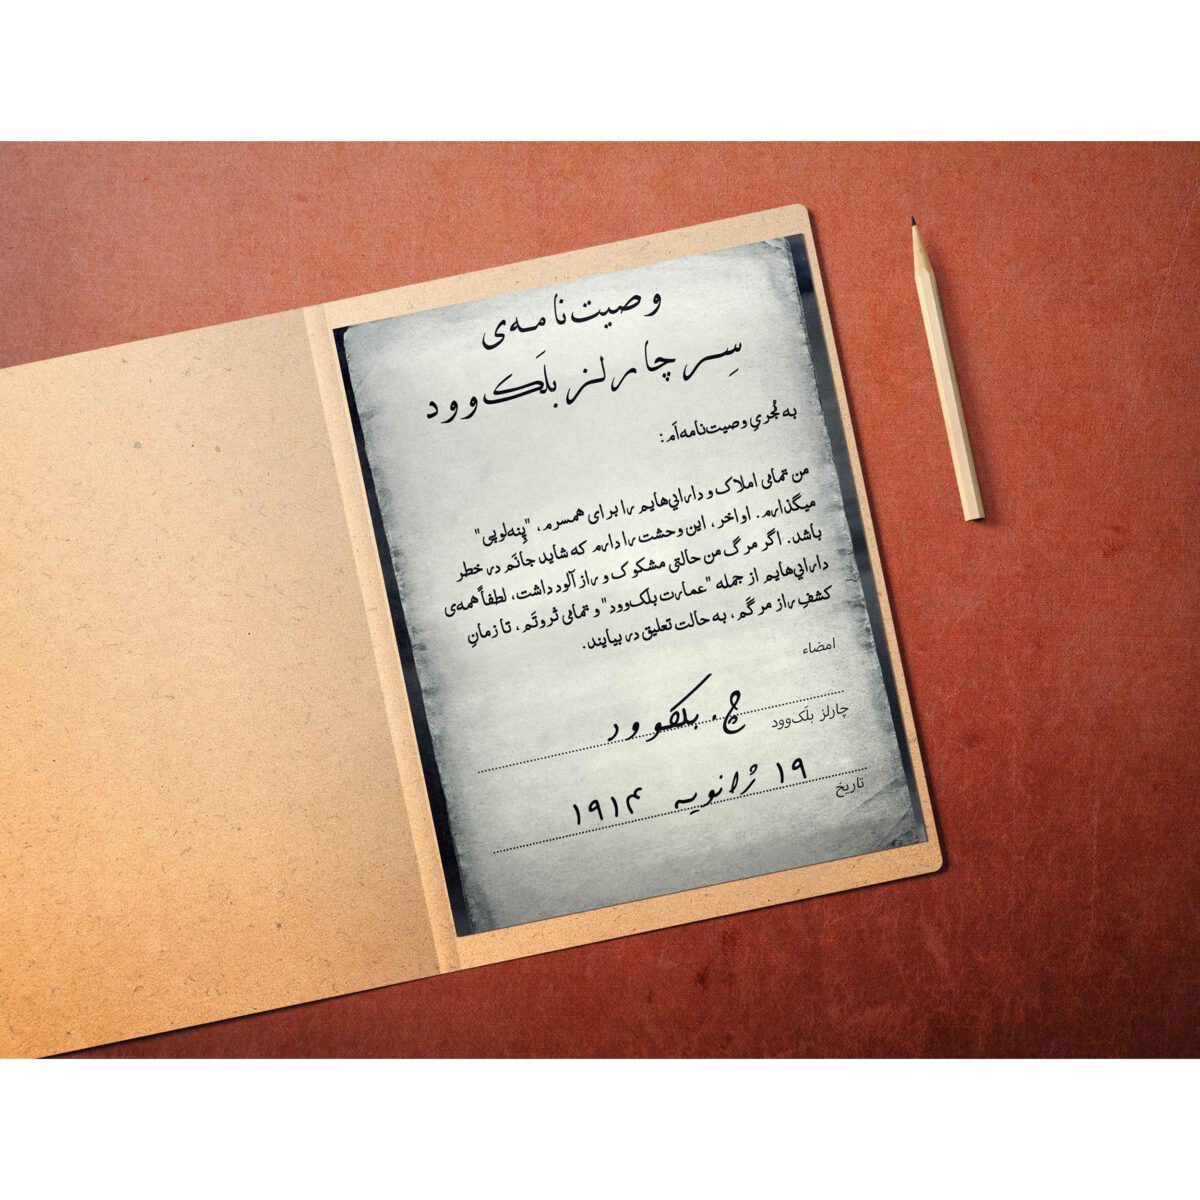 وصیت‌نامه‌ی
سِر چارلز بلَک‌وود
به مُجریِ وصیت‌نامه‌اَم:
من تمامی املاک و دارایی‌هایم را برای همسرم، "پِنه‌لوپی"
میگذارم. اواخر، این وحشت را دارم که شاید جانَم در خطر
باشد. اگر مرگ من حالتی مشکوک و رازآلود داشت، لطفاً همه‌ی
دارایی‌هایم از جمله "عمارت بلک‌وود" و تمامی ثروتَم، تا زمانِ
کشفِ راز مرگم، به حالت تعلیق در بیایند.
امضاء
چ. بلکوود
چارلز بلَک‌وود
۱۹ ژانویه ۱۹۱۴
تاریخ